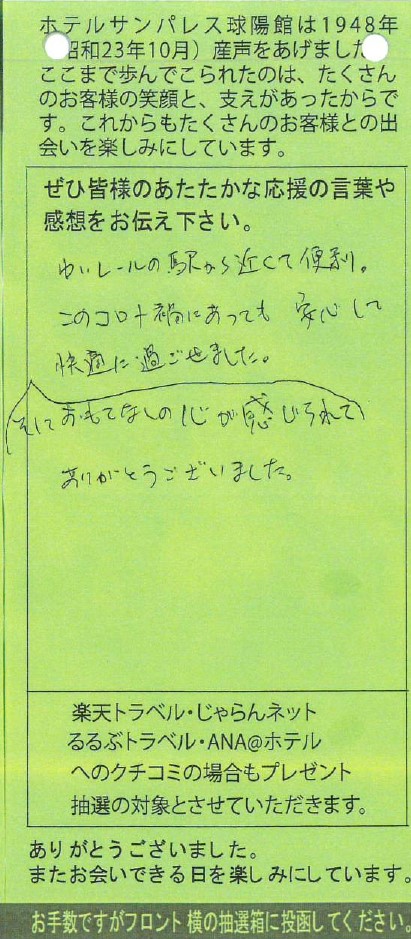 ホテルサンパレス球陽館は1948年
昭和23年10月）産声をあげました
ここまで歩んでこられたのは、たくさん
のお客様の笑顔と、支えがあったからで
す。これからもたくさんのお客様との出
会いを楽しみにしています。
ぜひ皆様のあたたかな応援の言葉や
感想をお伝え下さい。
ゆいレールの駅から近くて便利。
このコロナ禍にあっても 安心して
快適に過ごせました。
おもてなしの心が感じられて
ありがとうございました。
楽天トラベル・じゃらんネット
るるぶトラベル・ANA@ホテル
へのクチコミの場合もプレゼント
抽選の対象とさせていただきます。
ありがとうございました。
またお会いできる日を楽しみにしています。
お手数ですがフロント横の抽選箱に投函してください。